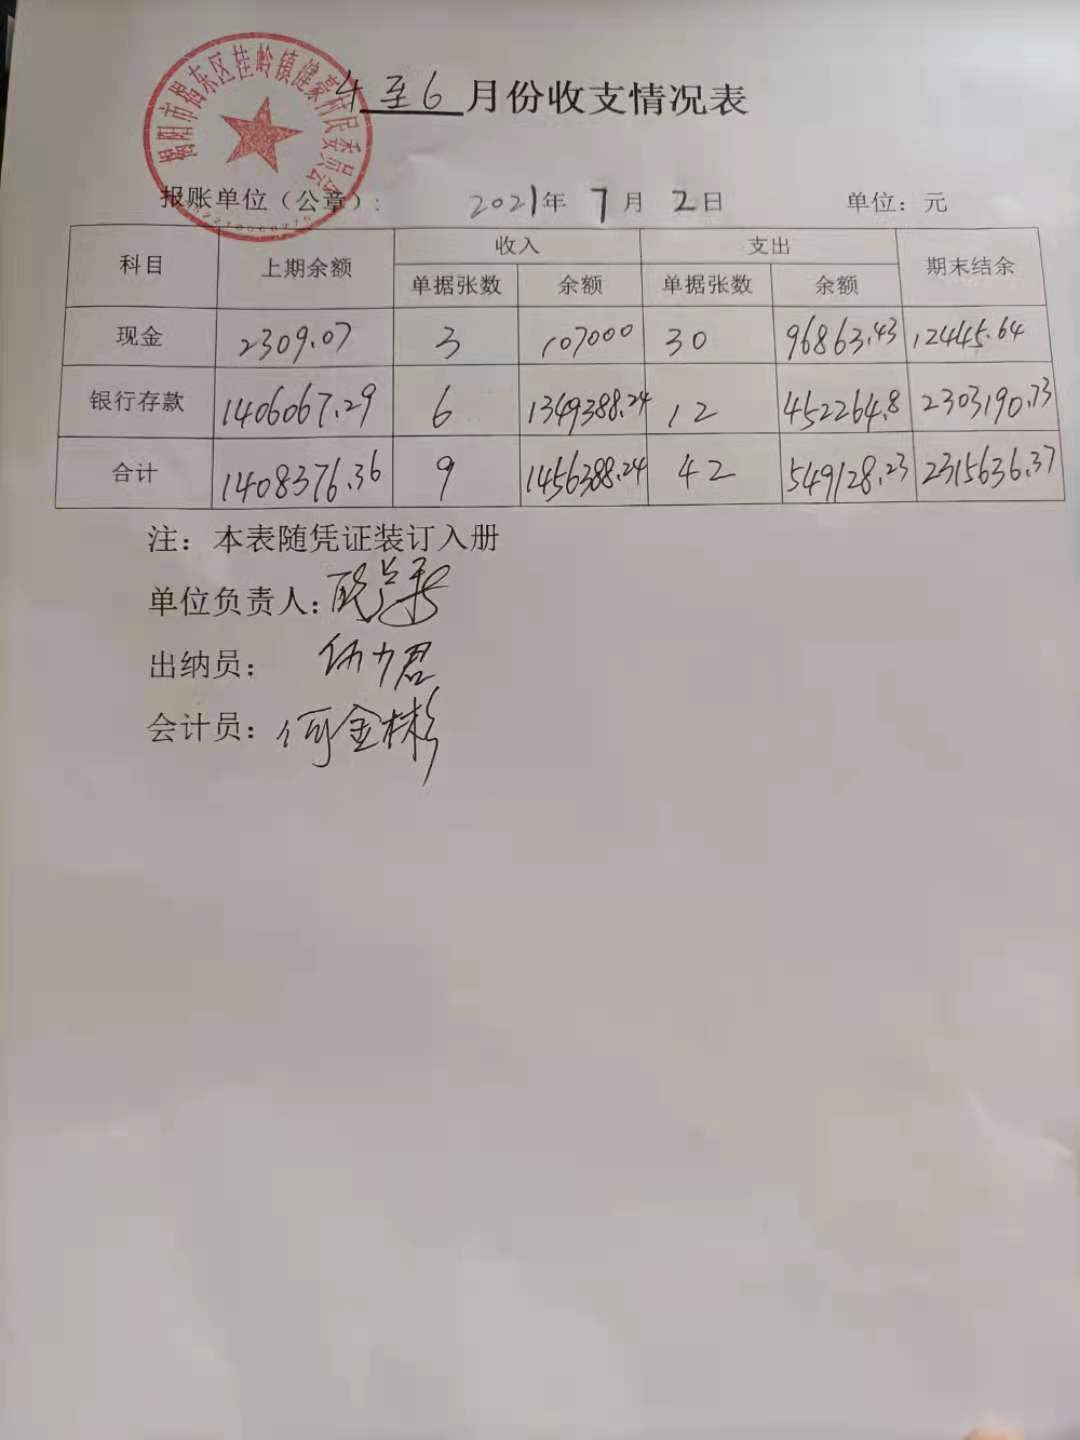 揭阳市揭东区桂岭镇健豪村民委员会
4至6月份收支情况表
报账单位(公章): 2021年 7月 2日 单位:元
科目 上期余额 收入 支出 期末结余
单据张数 余额 单据张数 余额
现金 2309.07 3 107000 30 96863.43 12445.64
银行存款 1406067.29 6 1349388.24 12 452264.8 2303190.73
合计 1408376.36 9 1456388.24 42 549128.23 2315636.37
注:本表随凭证装订入册
单位负责人:
出纳员:
会计员:何金彬